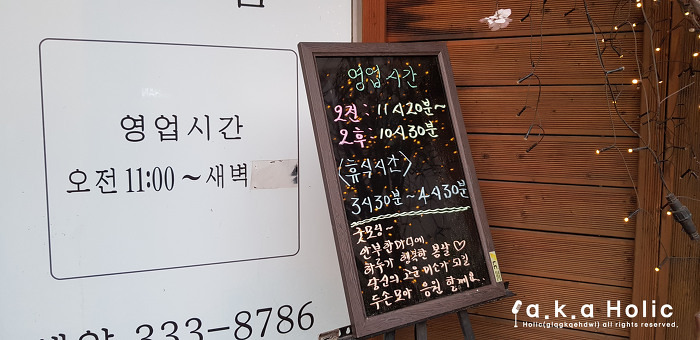 영업시간
오전 11:00 ~ 새벽
333-8786
영업시간
오전: 11시20분~
오후: 10시30분
<휴식시간>
3시30분~4시30분
굿모닝~
안부한마디에
하루가 행복한 봉살♡
당신의 고운 미소가 되길
두손모아 응원할께요..
a.k.a Holic
Holic(glqgkqehdwl) all rights reserved.